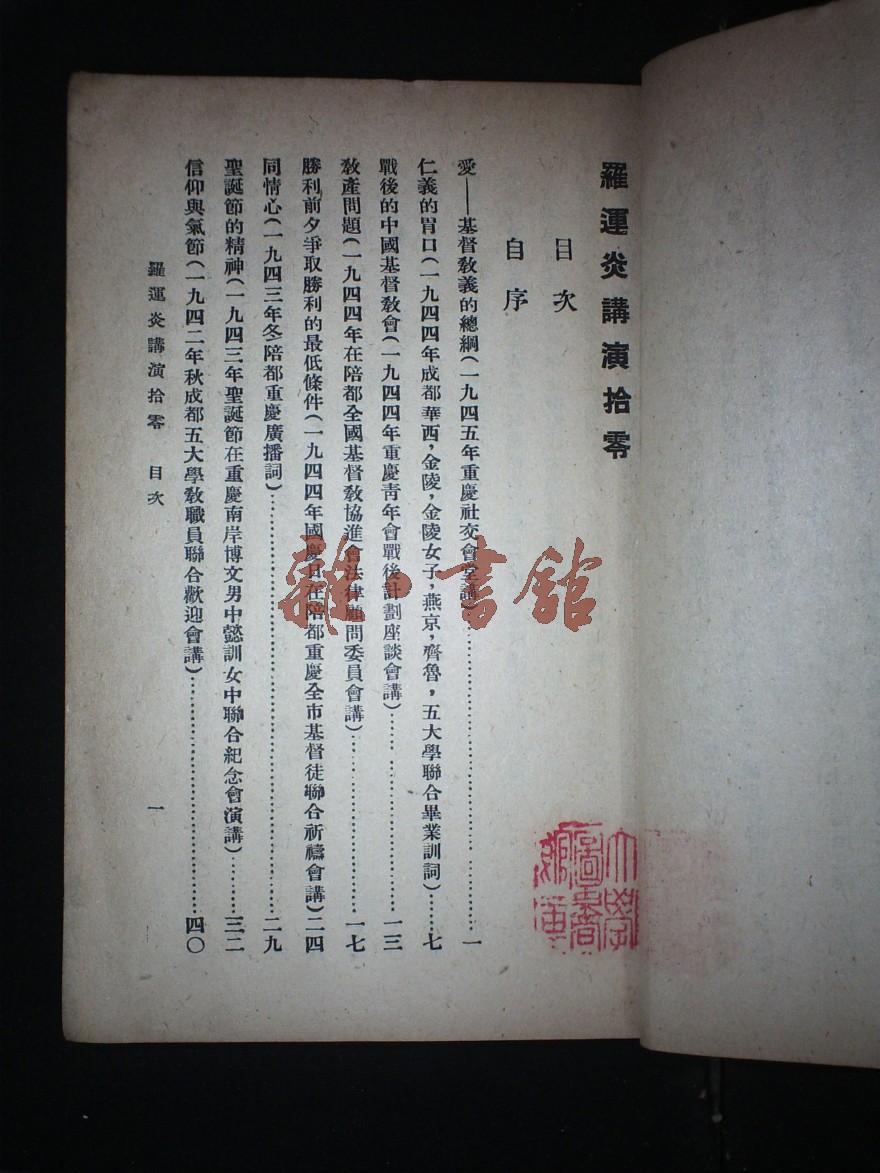 羅運炎講演拾零
目次
自序
愛——基督教義的總綱(一九四五年重慶社交會堂講)……………………一
仁義的胃口(一九四四年成都華西，金陵，金陵女子，燕京，齊魯，五大學聯合畢業訓詞)……七
戰後的中國基督教會(一九四四年重慶青年會戰後計劃座談會講)……………一三
教產問題(一九四四年在陪都全國基督教協進會法律顧問委員會講)……………一七
勝利前夕爭取勝利的最低條件(一九四四年國慶日在陪都重慶全市基督徒聯合祈禱會講)二四
同情心(一九四三年冬陪都重慶廣播詞)……………………………………二九
聖誕節的精神(一九四三年聖誕節在重慶南岸博文男中懿訓女中聯合紀念會演講)………三二
信仰與氣節(一九四二年秋成都五大學教職員聯合歡迎會講)……………………四〇
羅運炎講演拾零 目次
一
雜·書館
大學
圖書